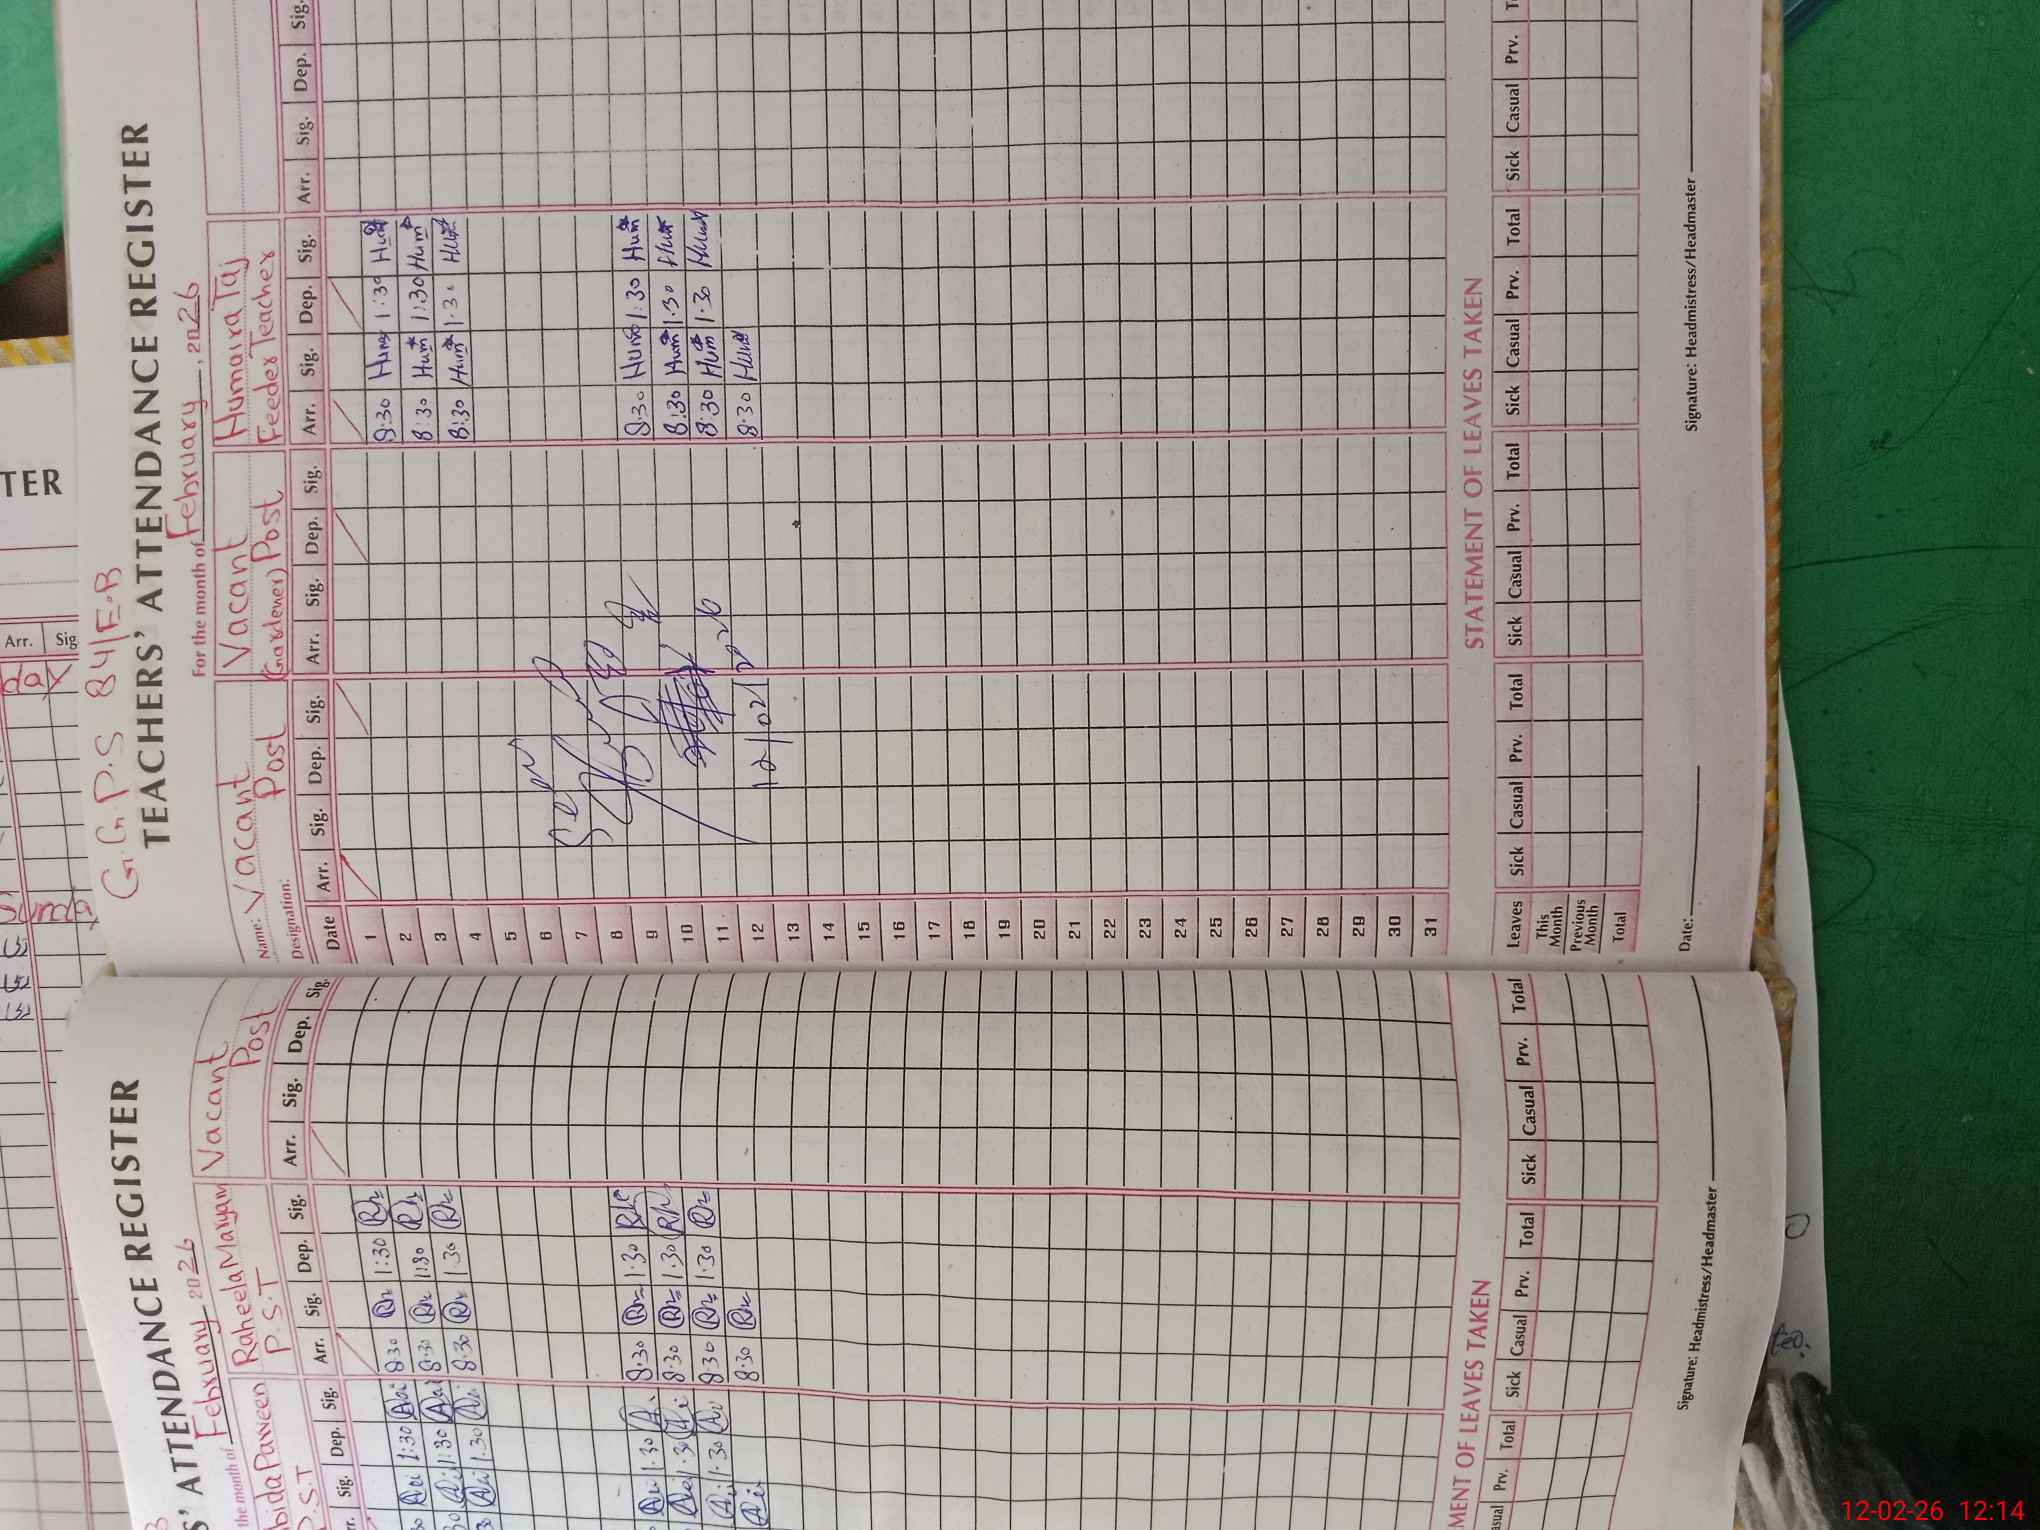 G.G.P.S 84/E.B
TEACHERS' ATTENDANCE REGISTER
For the month of February, 2026
Name: Vacant Vacant Humaira Taj
Designation: Post (Gardener) Post Feeder Teacher
Date Arr. Sig. Dep. Sig. Arr. Sig. Dep. Sig. Arr. Sig. Dep. Sig. Arr. Sig. Dep. Sig.
1 8:30 Hum 1:30 Hum
2 8:30 Hum 1:30 Hum
3 8:30 Hum 1:30 Hum
4
5
6
7
8
9 8:30 Hum 1:30 Hum
10 8:30 Hum 1:30 Hum
11 8:30 Hum 1:30 Hum
12 12/02/2026 8:30 Hum
13
14
15
16
17
18
19
20
21
22
23
24
25
26
27
28
29
30
31
STATEMENT OF LEAVES TAKEN
Leaves Sick Casual Prv. Total Sick Casual Prv. Total Sick Casual Prv. Total Sick Casual Prv.
This Month
Previous Month
Total
Date: Signature: Headmistress/Headmaster
S' ATTENDANCE REGISTER
the month of February 2026
bida Parveen Raheela Maryam Vacant
P.S.T P.S.T Post
rr. Sig. Dep. Sig. Arr. Sig. Dep. Sig. Arr. Sig. Dep. Sig.
30 1:30 8:30 1:30
30 1:30 8:30 1:30
30 1:30 8:30 1:30
1:30 8:30 1:30
1:30 8:30 1:30
1:30 8:30 1:30
8:30
MENT OF LEAVES TAKEN
asual Prv. Total Sick Casual Prv. Total Sick Casual Prv. Total
Signature: Headmistress/Headmaster
TER
Arr. Sig
day
Sunda
12-02-26 12:14